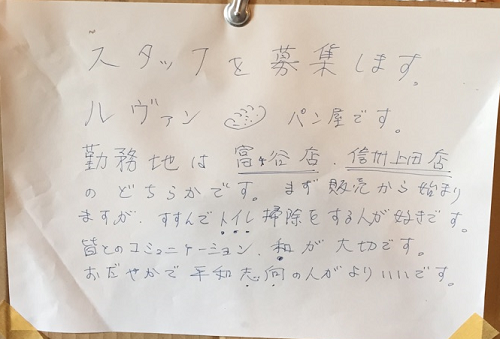 スタッフを募集します。
ルヴァン パン屋です。
勤務地は 富ヶ谷店、信州上田店
のどちらかです。まず販売から始まり
ますが、すすんでトイレ掃除をする人が好きです。
皆とのコミュニケーション、和が大切です。
おだやかで平和志向の人がよりいいです。